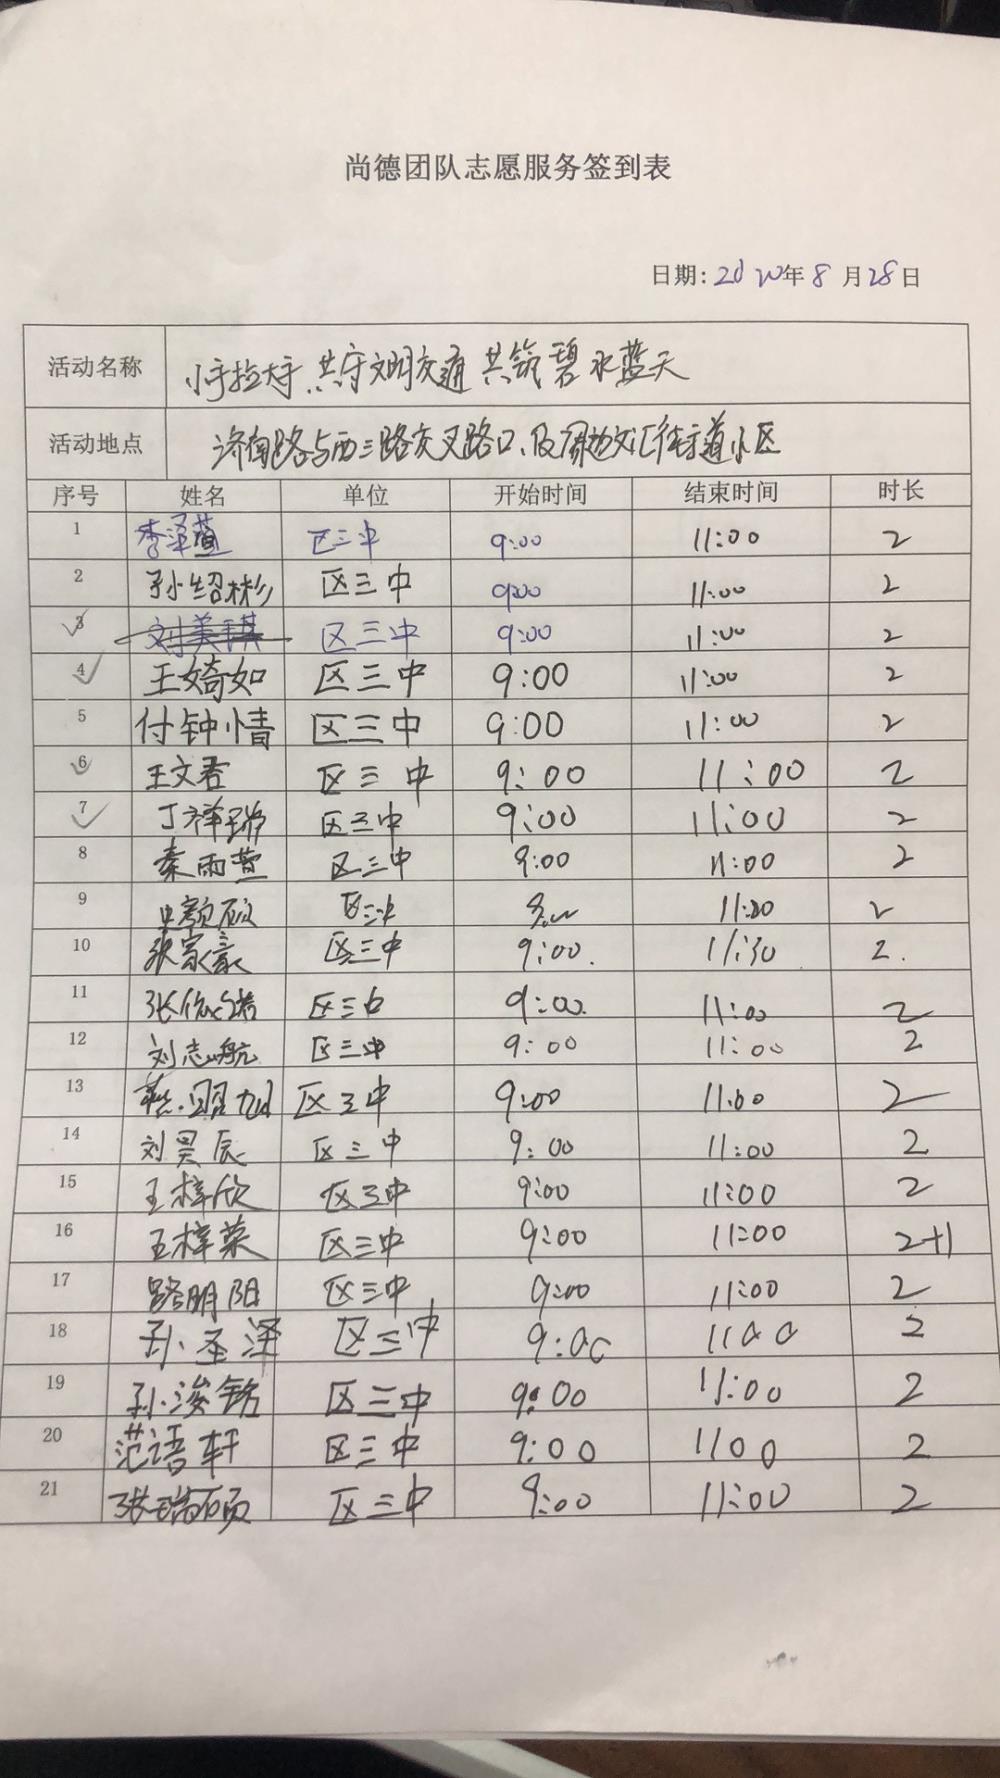 尚德团队志愿服务签到表
日期: 2020年8月28日
活动名称 小手拉大手 共守文明交通 共筑碧水蓝天
活动地点 济南路与西三路交叉路口、及周边文汇街道小区
序号 姓名 单位 开始时间 结束时间 时长
1 李泽萱 区三中 9:00 11:00 2
2 孙绍彬 区三中 9:00 11:00 2
3 刘美琪 区三中 9:00 11:00 2
4 王婍如 区三中 9:00 11:00 2
5 付钟情 区三中 9:00 11:00 2
6 王文君 区三中 9:00 11:00 2
7 丁祥瑞 区三中 9:00 11:00 2
8 秦雨萱 区三中 9:00 11:00 2
9 区三中 11:20 2
10 张家豪 区三中 9:00. 11:30 2.
11 区三中 9:00. 11:00 2
12 刘志航 区三中 9:00 11:00 2
13 区三中 9:00 11:00 2
14 刘昊辰 区三中 9:00 11:00 2
15 王梓欣 区三中 9:00 11:00 2
16 王梓菜 区三中 9:00 11:00 2+1
17 路明阳 区三中 9:00 11:00 2
18 孙圣泽 区三中 9:00 1100 2
19 孙浚铭 区三中 9:00 11:00 2
20 范语轩 区三中 9:00 1100 2
21 张瑞硕 区三中 9:00 11:00 2